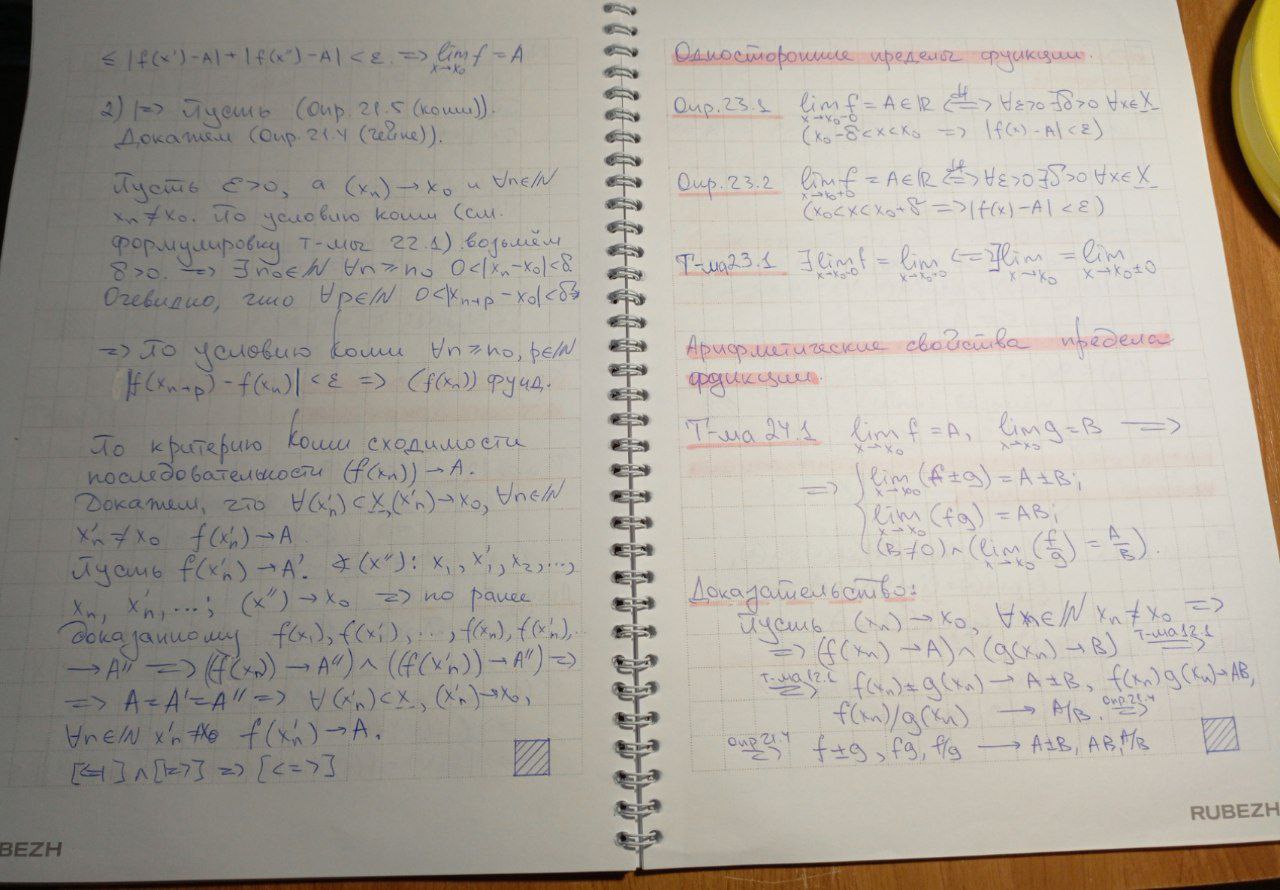 ≤ |f(x')-A|+|f(x'')-A| < ε. => lim f = A
x→x₀
2) |=> Пусть (Опр. 21.5 (коши)).
Докажем (Опр. 21.4 (гейне)).
Пусть ε>0, а (xₙ)→x₀ и ∀n∈ℕ
xₙ≠x₀. По условию Коши (см.
формулировку т-мы 22.1) возьмём
δ>0. => ∃n₀∈ℕ ∀n≥n₀ 0<|xₙ-x₀|<δ.
Очевидно, что ∀p∈ℕ 0<|xₙ₊ₚ-x₀|<δ=>
=> По условию Коши ∀n≥n₀, p∈ℕ
|f(xₙ₊ₚ)-f(xₙ)|<ε => (f(xₙ)) фунд.
По критерию Коши сходимости
последовательности (f(xₙ))→A.
Докажем, что ∀(x'ₙ)⊂X,(x'ₙ)→x₀, ∀n∈ℕ
x'ₙ≠x₀ f(x'ₙ)→A.
Пусть f(x'ₙ)→A'. ∢(x''): x₁, x'₁, x₂,...,
xₙ, x'ₙ,...; (x'')→x₀ => по ранее
доказанному f(x₁), f(x'₁),..., f(xₙ), f(x'ₙ),...
→A'' => (f(xₙ)→A'')∧(f(x'ₙ))→A'') =>
=> A=A'=A'' => ∀(x'ₙ)⊂X, (x'ₙ)→x₀,
∀n∈ℕ x'ₙ≠x₀ f(x'ₙ)→A.
[<=|]∧[|=>] => [<=>]
BEZH
Односторонние пределы функции.
Опр. 23.1 lim f = A∈ℝ <=> ∀ε>0 ∃δ>0 ∀x∈X
x→x₀-0
(x₀-δ<x<x₀ => |f(x)-A|<ε)
Опр. 23.2 lim f = A∈ℝ <=> ∀ε>0 ∃δ>0 ∀x∈X
x→x₀+0
(x₀<x<x₀+δ => |f(x)-A|<ε)
Т-ма 23.1 ∃ lim f = lim <=> ∃ lim = lim
x→x₀-0 x→x₀+0 x→x₀ x→x₀±0
Арифметические свойства предела
функции.
Т-ма 24.1 lim f = A, lim g = B =>
x→x₀ x→x₀
=> { lim (f±g) = A±B;
x→x₀
lim (fg) = AB;
x→x₀
(B≠0)∧(lim (f/g) = A/B).
x→x₀
Доказательство:
Пусть (xₙ)→x₀, ∀n∈ℕ xₙ≠x₀ =>
=> (f(xₙ)→A)∧(g(xₙ)→B) т-ма 12.1 =>
т-ма 12.1 => f(xₙ)±g(xₙ)→A±B, f(xₙ)g(xₙ)→AB,
f(xₙ)/g(xₙ) → A/B. опр 21.4 =>
опр 21.4 => f±g, fg, f/g → A±B, AB, A/B
RUBEZH